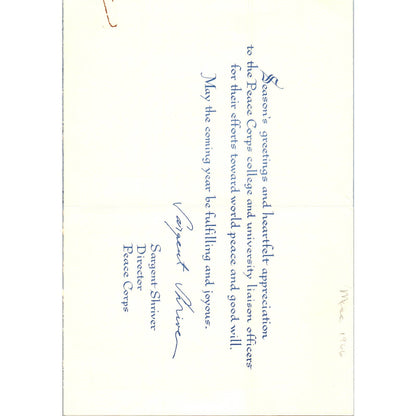 Season's greetings and heartfelt appreciation
to the Peace Corps college and university liaison officers
for their efforts toward world peace and good will.
May the coming year be fulfilling and joyous.
Sargent Shriver
Sargent Shriver
Director
Peace Corps
1966